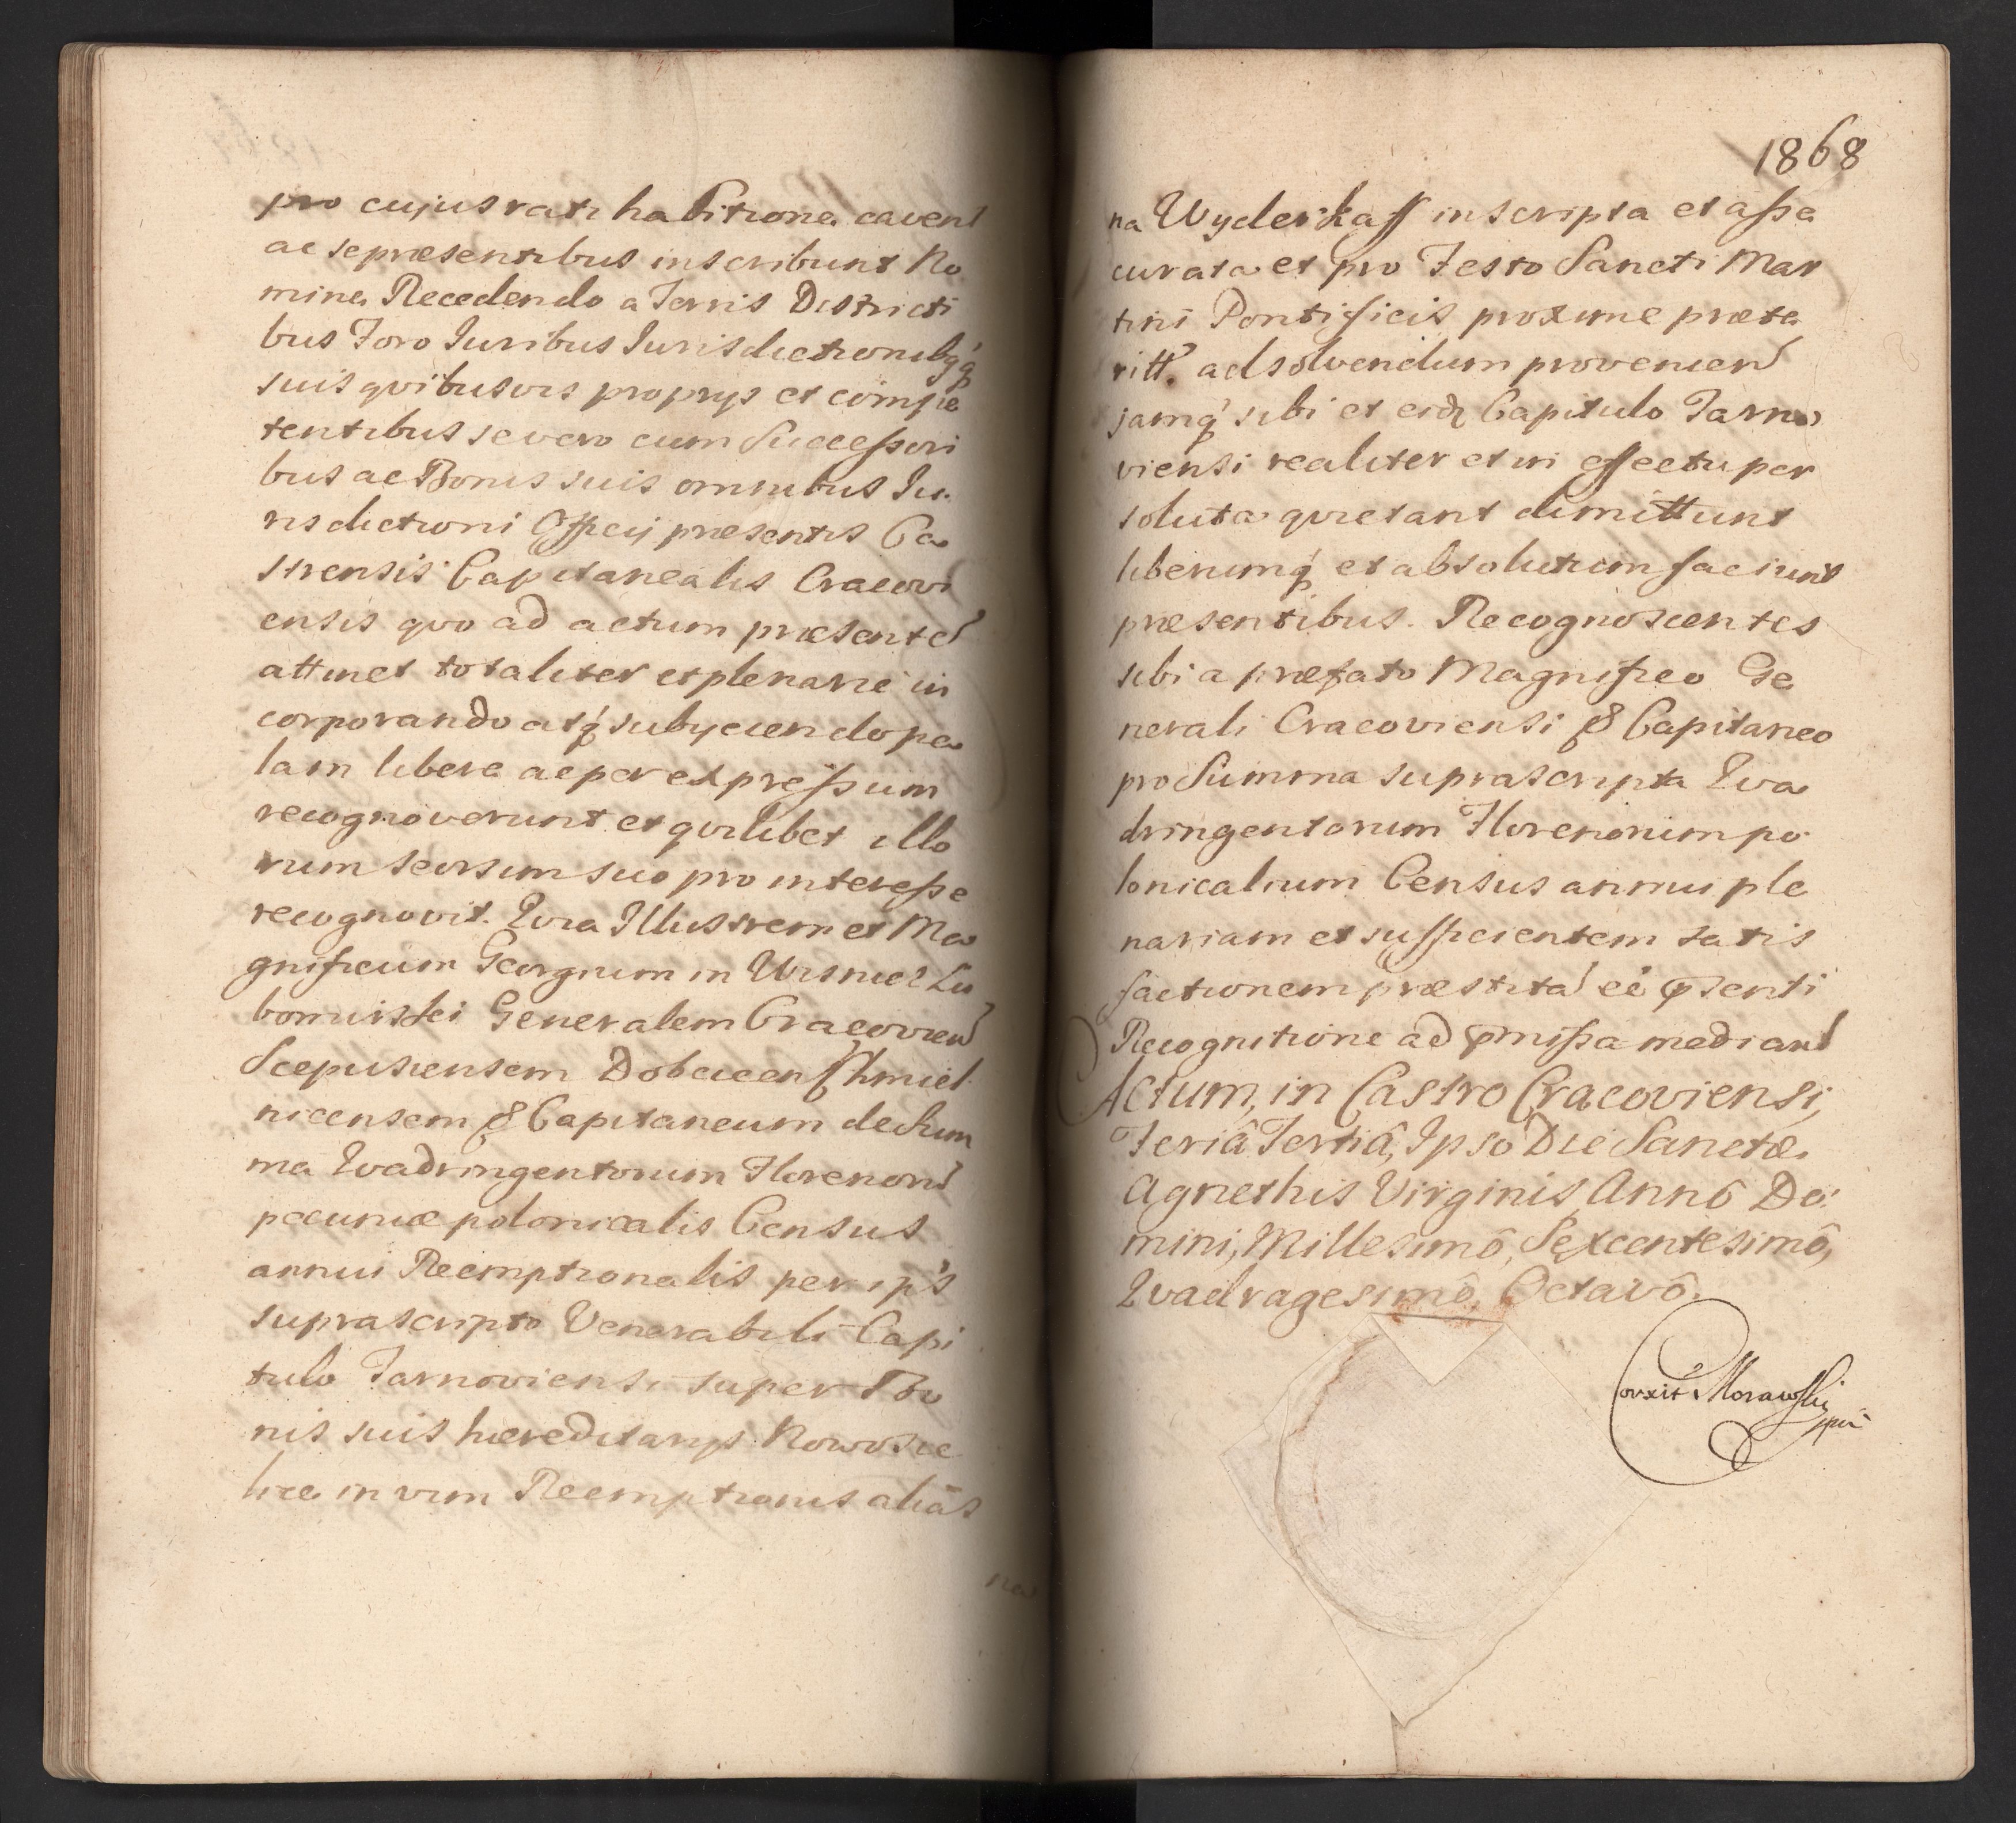 pro cujus rati habitione cavent
ac se præsentibus inscribunt No
mine Recedendo a Terris Districti
bus Foro Iuribus Iurisdictionibq́;
suis qvibusvis proprys et compe
tentibus se vero cum Successori
bus ac Bonis suis omnibus Iu
risdictioni Officij præsentis Ca
strensis Capitanealis Cracovi
ensis qvo ad actum præsentem
attinet totaliter et plenarie in
corporando atq́ subyciendo pa
lam libere ac per expressum
recognoverunt et qvilibet illo
rum seorsim suo pro interesse
recognovit. Qvia Illustrem et Ma
gnificum Georgium in Wisnicz Lu
bomirski Generalem Cracovien
Scepusiensem Dobcicen Chmiel
nicensem & Capitaneum de Sum
ma Qvadringentorum Florenorū
pecuniæ polonicalis Census
annui Reemptionalis per ips
suprascripto Venerabili Capi
tulo Tarnoviensi super Bo
nis suis hæreditarys Nowosie
lice in vim Reemptionis aliàs
na
1868
na Wyderkaff inscripta et asse
curata et pro Festo Sancti Mar
tini Pontificis proxime præte
ritt. ad solvendum provenien
jamq́ sibi et eidē Capitulo Tarno
viensi realiter et in effectu per
soluta qvietant dimittunt
liberumq́ et absolutum faciunt
præsentibus. Recognoscentes
sibi a præfato Magnifico Ge
nerali Cracoviensi & Capitaneo
pro Summa suprascripta Qva
dringentorum Florenorum po
lonicalium Census annui ple
nariam et sufficientem satis
factionem præstitā eē pṡenti
Recognitione ad pṁissa mediant
Actum, in Castro Cracoviensi,
Feriâ Tertiâ, Ipso Die Sanctæ
Agnethis Virginis Annô Do:
mini, Millesimô, Sexcentesimô,
Qvadragesimô, Octavô.
Corxit Morawski
mpa